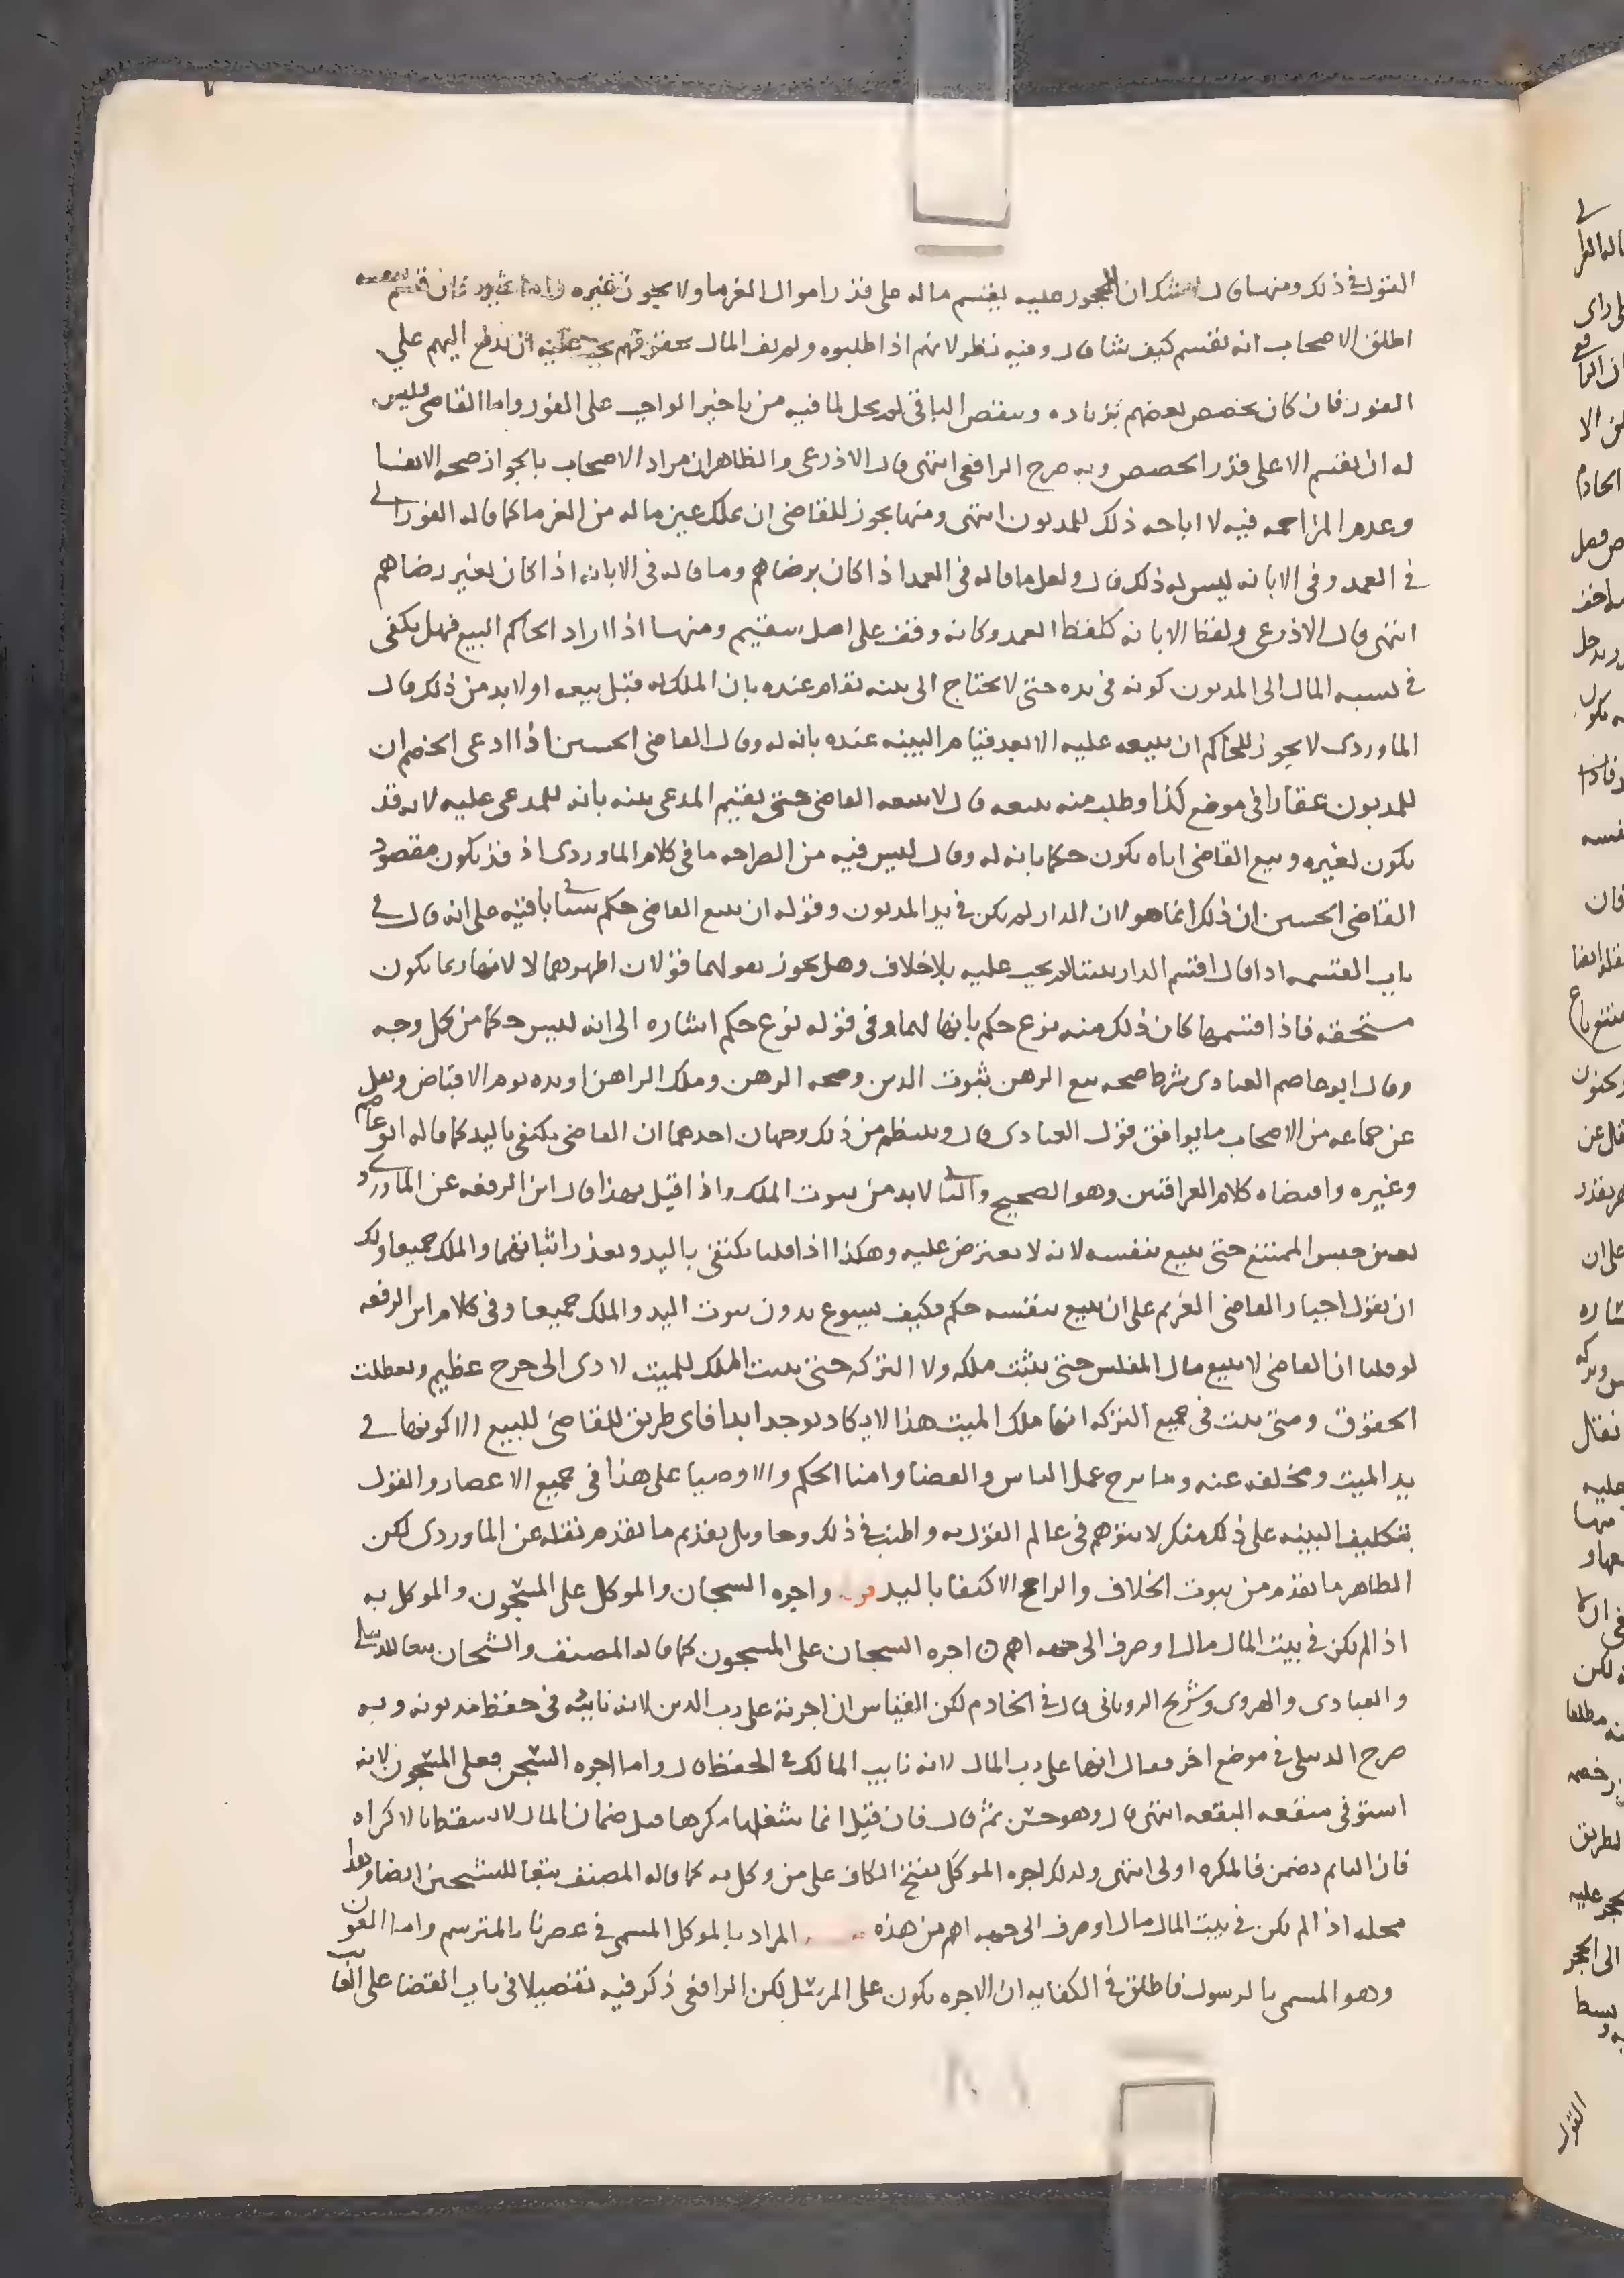 القول في ذلك ومنها قال السبكي ان المحجور عليه يقسم ماله على قدر اموال الغرما ولا يجوز غيره واما غير فان قسم بنفسه
اطلق الاصحاب انه يقسم كيف شا قال وفيه نظر لانهم اذا طلبوه ولم يف المال بحقوقهم يجب عليه ان يدفع اليهم علي
الفور فان كان يخصص بعضهم بزياده وينقص الباقي لم يحل لما فيه من تاخير الواجب على الفور واما القاضي فليس
له ان يقسم الا على قدر الحصص وبه صرح الرافعي انتهى قال الاذرعي والظاهر ان مراد الاصحاب بالجواز صحه الايفا
وعدم المزاحمه فيه لا اباحه ذلك للمديون انتهى ومنها يجوز للقاضي ان يملك عين ماله من الغرما كما قاله الفوراني
في العمد وفي الابانه ليس له ذلك قال ولعل ما قاله في العمد اذا كان برضاهم وما قاله في الابانه اذا كان بغير رضاهم
انتهى قال الاذرعي ولفظ الابانه كلفظ العمد وكانه وقف على اصل سقيم ومنها اذا اراد الحاكم البيع فهل يكفي
في نسبه المال الى المديون كونه في يده حتى لا يحتاج الى بينه تقام عنده بان الملك له قبل بيعه او لا بد من ذلك قال
الماوردي لا يجوز للحاكم ان يبيعه عليه الا بعد قيام البينه عنده بانه له وقال القاضي الحسين اذا ادعى الخصم ان
للمديون عقارا في موضع كذا وطلب منه بيعه قال لا يبيعه القاضي حتى يقيم المدعي بينه بانه للمدعى عليه لانه قد
يكون لغيره وبيع القاضي اياه يكون حكما بانه له وقال ليس فيه من الصراحه ما في كلام الماوردي اذ قد يكون مقصود
القاضي الحسين ان ذلك انما هو لان الدار لم يكن في يد المديون وقوله ان بيع القاضي حكم ينافيه على انه قال في
باب القسمه اذا قال اقسم الدار بيننا لم يجب عليه بلا خلاف وهل يجوز بقولهما قولان اظهرهما لا لانها ربما يكون
مستحقه فاذا اقتسمها كان ذلك منه نوع حكم بانها لهما وفي قوله نوع حكم اشاره الى انه ليس حكما من كل وجه
وقال ابو عاصم العبادي شرط صحه بيع الرهن ثبوت الدين وصحه الرهن وملك الراهن او يده يوم الاقباض ونقل
عن جماعه من الاصحاب ما يوافق قول العبادي قال وينتظم من ذلك وجهان احدهما ان القاضي يكتفي باليد كما قاله ابو عاصم
وغيره واقتضاه كلام العراقيين وهو الصحيح والثاني لا بد من ثبوت الملك واذا قيل بهذا قال ابن الرفعه عن الماوردي
تعين حبس الممتنع حتى يبيع بنفسه لانه لا يعترض عليه وهكذا اذا قلنا يكتفي باليد وتعذر اثباتهما والملك جميعا ولك
ان يقول اجبار القاضي الغريم على ان يبيع بنفسه حكم فكيف يسوغ بدون ثبوت اليد والملك جميعا وفي كلام ابن الرفعه
لو قلنا ان القاضي لا يبيع مال المفلس حتى يثبت ملكه ولا التركه حتى يثبت الملك للميت لادى الى حرج عظيم ولعطلت
الحقوق ومتى يثبت في جميع التركه انها ملك الميت هذا لا يكاد يوجد ابدا فاي طريق للقاضي للبيع الا كونها في
يد الميت ومخلفه عنه وما برح عمل الناس والقضا وامنا الحكم والاوصيا على هذا في جميع الاعصار والقول
بتكليف البينه على ذلك منكر لا يتوهم في عالم القول به واطنب في ذلك وحاول تقديم ما تقدم نقله عن الماوردي لكن
الظاهر ما تقدم من ثبوت الخلاف والراجح الاكتفا باليد قوله واجره السجان والموكل على المسجون والموكل به
اذا لم يكن في بيت المال مال او صرف الى جهه اهم ان اجره السجان على المسجون كما قاله المصنف والشيخان تبعا للدبيلي
والعبادي والهروي وشريح الروياني قال في الخادم لكن القياس ان اجرته على رب الدين لانه نايبه في حفظ مديونه وبه
صرح الدبيلي في موضع اخر فقال انها على رب المال لانه نايب المالك في الحفظ قال واما اجره السجن فعلى المسجون لانه
استوفى منفعه البقعه انتهى قال وهو حسن ثم قال فان قيل انما شغلها مكرها قيل ضمان المال لا يسقط بالاكراه
فان النايم يضمن فالمكره اولى انتهى وكذلك اجره الموكل بفتح الكاف على من وكل به كما قاله المصنف تبعا للشيخين ايضا وهذا
محله اذا لم يكن في بيت المال مال او صرف الى جهه اهم من هذه المراد بالموكل المسمى في عصرنا بالمترسم واما العون
وهو المسمى بالرسول فاطلق في الكفايه ان الاجره يكون على المرسل لكن الرافعي ذكر فيه تفصيلا في باب القضا على الغايب
القول